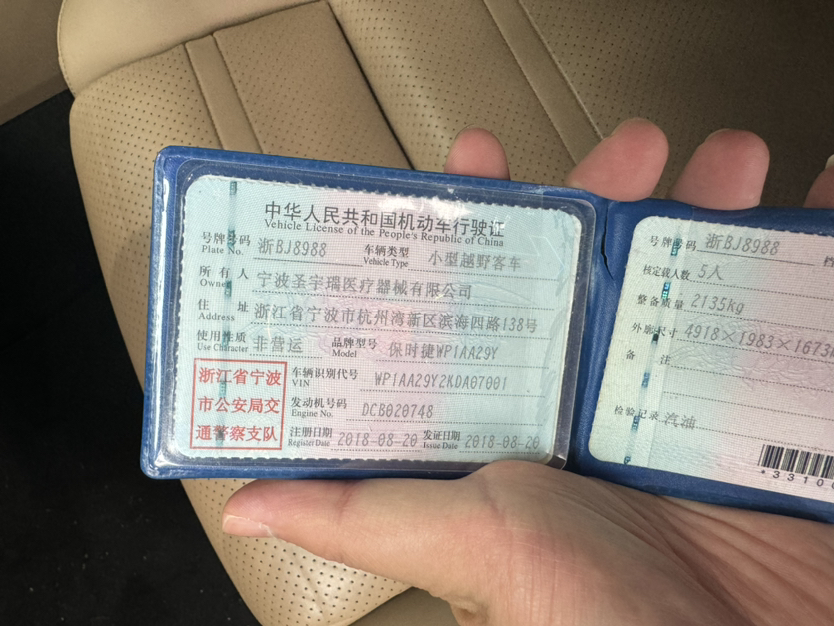 中华人民共和国机动车行驶证
Vehicle License of the People's Republic of China
号牌号码 浙BJ8988 车辆类型 小型越野客车
Plate No. Vehicle Type
所有人 宁波圣宇瑞医疗器械有限公司
Owner
住址 浙江省宁波市杭州湾新区滨海四路138号
Address
使用性质 非营运 品牌型号 保时捷WP1AA29Y
Use Character Model
浙江省宁波
市公安局交
通警察支队
车辆识别代号 WP1AA29Y2KDA07001
VIN
发动机号码 DCB020748
Engine No.
注册日期 2018-08-20 发证日期 2018-08-20
Register Date Issue Date
号牌号码 浙BJ8988
核定载人数 5人
整备质量 2135kg
外廓尺寸 4918×1983×1673
备注
检验记录 汽油
*3310